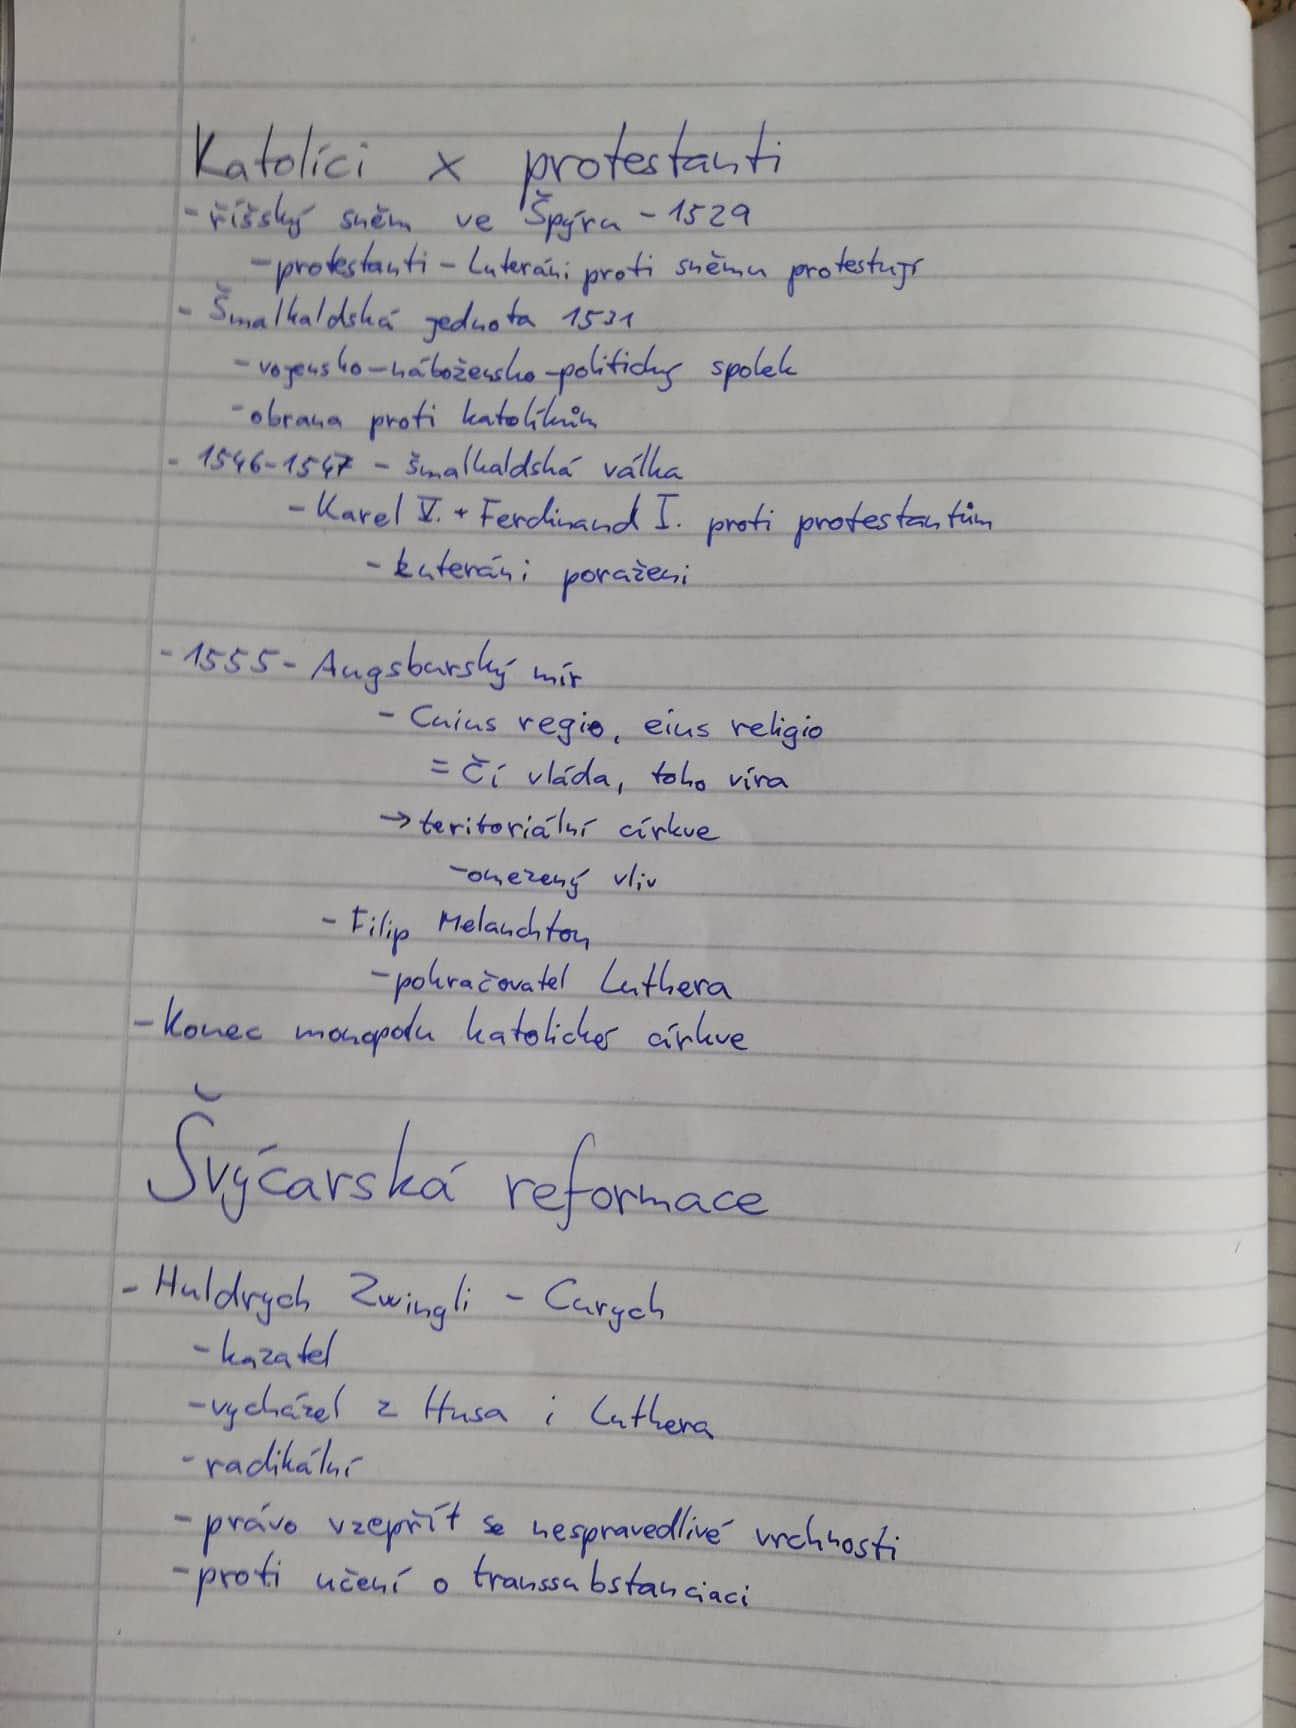 Katolíci x protestanti
- říšský sněm ve Špýru - 1529
- protestanti - luteráni proti sněmu protestují
- Šmalkaldská jednota 1531
- vojensko-nábožensko-politický spolek
- obrana proti katolíkům
- 1546-1547 - šmalkaldská válka
- Karel V. + Ferdinand I. proti protestantům
- luteráni poraženi
- 1555 - Augsburský mír
- Cuius regio, eius religio
= čí vláda, toho víra
→ teritoriální církve
- omezený vliv
- Filip Melanchton
- pokračovatel Luthera
- Konec monopolu katolické církve
Švýcarská reformace
- Huldrych Zwingli - Curych
- kazatel
- vycházel z Husa i Luthera
- radikální
- právo vzepřít se nespravedlivé vrchnosti
- proti učení o transsubstanciaci